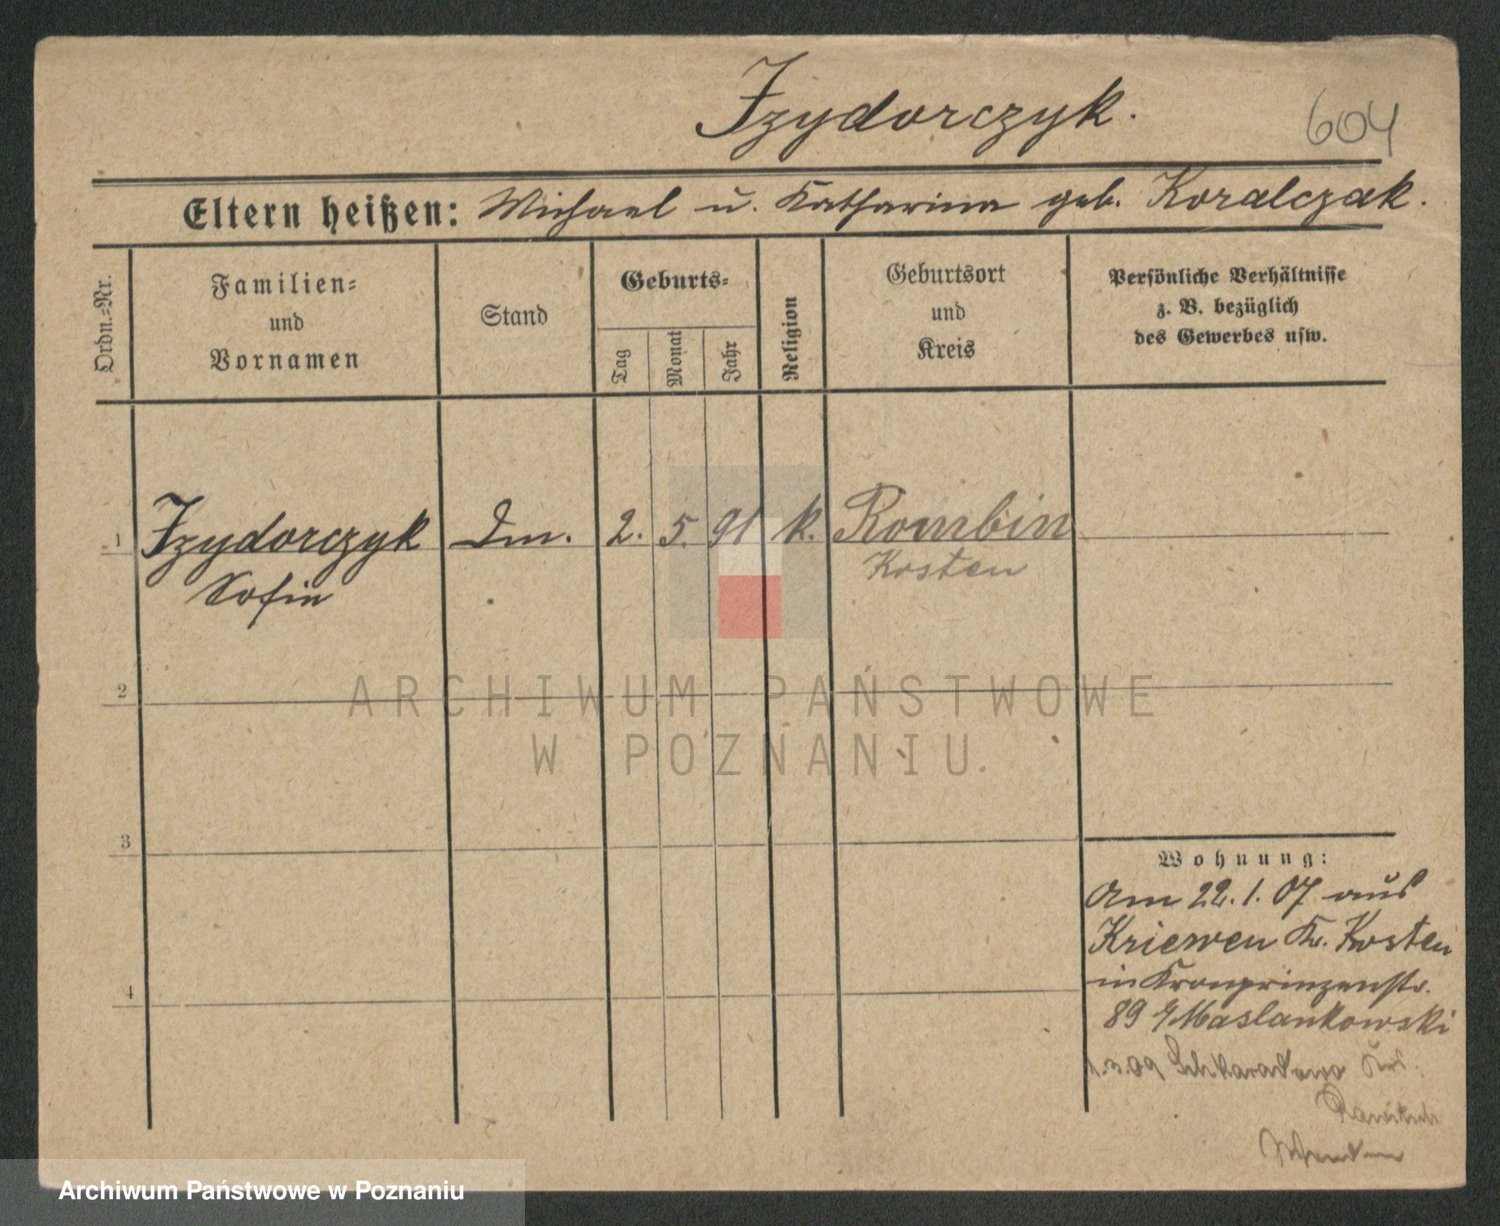 Izydorczyk.
604
Eltern heißen: Michael u. Katharina geb. Koralczak.
Ordn.-Nr.
Familien-
und
Vornamen
Stand
Geburts-
Tag
Monat
Jahr
Religion
Geburtsort
und
Kreis
Persönliche Verhältnisse
z. B. bezüglich
des Gewerbes usw.
1 Izydorczyk Dm. 2. 5. 91 k. Rombin
Sofie Kosten
2
3
4
Wohnung:
Am 22.1.07 aus
Kriewen Kr. Kosten
in Kronprinzenstr.
89 Maslankowski
1.3.09
Rawitsch
ARCHIWUM PAŃSTWOWE
W POZNANIU
Archiwum Państwowe w Poznaniu